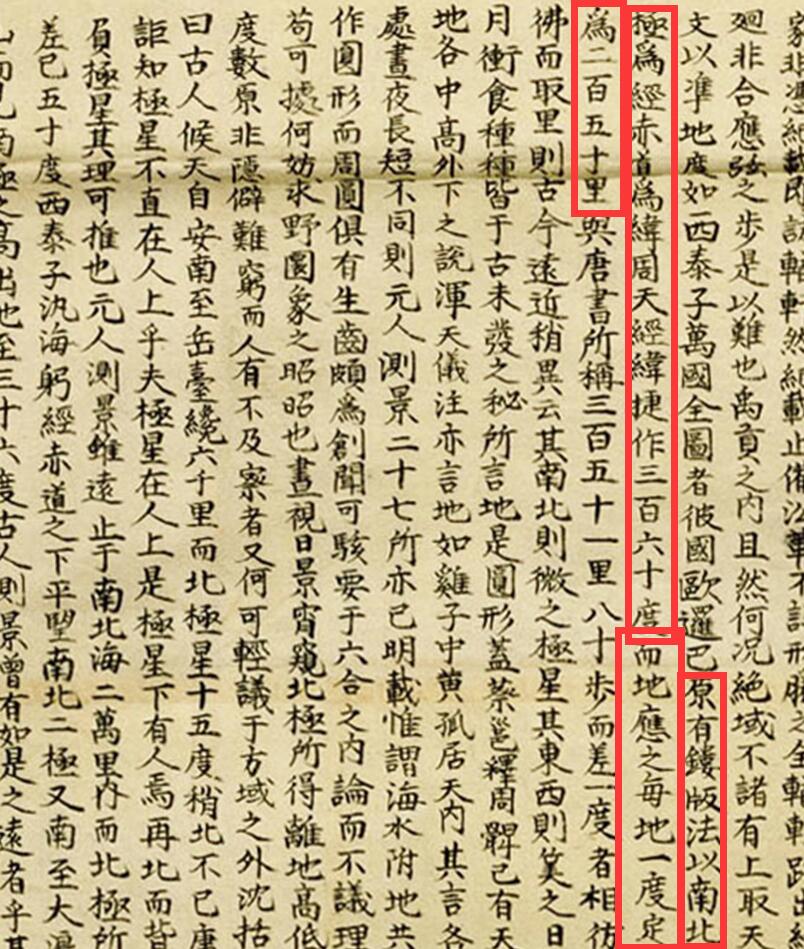 家非憑紙載即訪輶軒然紙載止備沿革不詳形勝之全輶軒路出紆
廻非合應弦之步是以難也禹貢之內且然何况絕域不諸有上取天
文以準地度如西泰子萬國全圖者彼國歐邏巴原有鏤版法以南北
極爲經赤道爲緯周天經緯捷作三百六十度而地應之每地一度定
爲二百五十里與唐書所稱三百五十一里八十步而差一度者相彷
彿而取里則古今遠近稍異云其南北則徵之極星其東西則筭之日
月衝食種種皆于古未發之秘所言地是圓形蓋蔡邕釋周髀已有天
地各中高外下之說渾天儀注亦言地如雞子中黄孤居天内其言各
處晝夜長短不同則元人測景二十七所亦已明載惟謂海水附地共
作圓形而周圓俱有生齒頗爲創聞可駭要于六合之内論而不議理
苟可據何妨求野圜象之昭昭也晝視日景宵窺北極所得離地高低
度數原非隱僻難窮而人有不及察者又何可輕議于方域之外沈括
曰古人候天自安南至岳臺纔六千里而北極星十五度稍北不已庸
詎知極星不直在人上乎夫極星在人上是極星下有人焉再北而背
負極星其理可推也元人測景雖遠止于南北海二萬里内而北極所
差已五十度西泰子汎海躬經赤道之下平望南北二極又南至大浪
山而見南極之高出地至三十六度古人則景曾有如是之遠者乎其